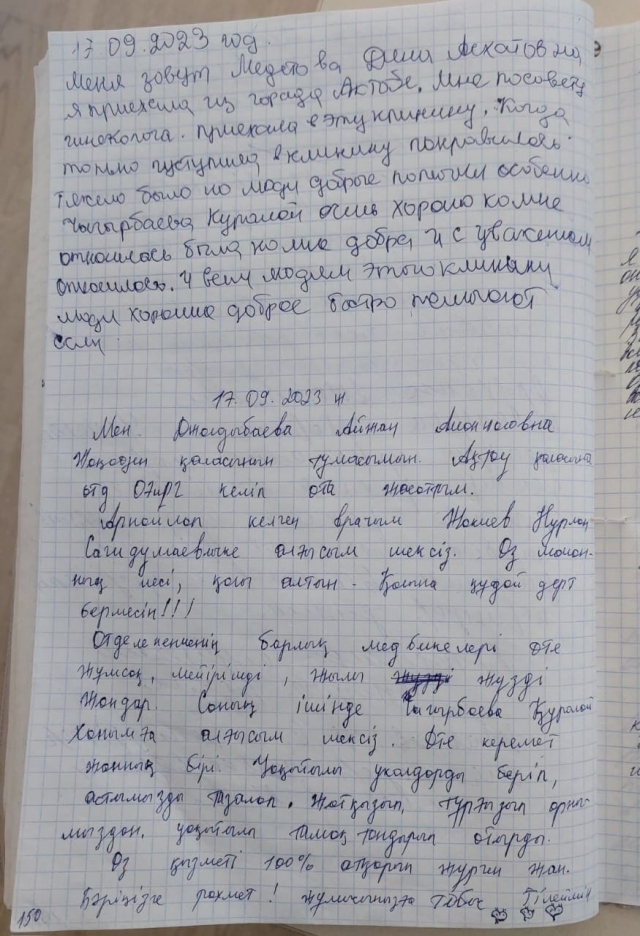 17.09.2023 год.
Меня зовут Медетова Дина Асхатовна
я приехала из города Актобе. Мне посовету
гинеколога. приехала в эту клинику. Когда
только пуступила в клинику понравилось.
тяжело было но люди доброе помочи особенно
Чагырбаева Куралой очень хорошо ко мне
относилась была ко мне добра и с уважением
относилась. и всем людям этого клиники
люди хорошие доброе бастро помогают

17.09.2023 ж
Мен. Джолдыбаева Айжан
Жаңаөзен қаласының тумасымын. Ақтау қаласына
келіп ота жасаттым.
Арнайлап келген врачым Жакиев Нурлан
Сагидумаевичке алғысым шексіз. Өз маман-
ның иесі, қолы алтын. Қолыңа құдай дерт
бермесін!!!
Отделениенің барлық медбикелері өте
жұмсақ, мейірімді, жылы жүзді
жандар. Соның ішінде Чагырбаева Құралай
ханымға алғысым шексіз. Өте керемет
жанның бірі. Уақытылы уколдарды беріп,
астымызды тазалап. жатқызып, тұрғызып орны-
мыздан, уақытылы тамақтандырып отырды.
Өз қызметі 100% атқарып жүрген жан.
Бәріңізге рахмет! жұмысыңызға табыс Тілеймін
150